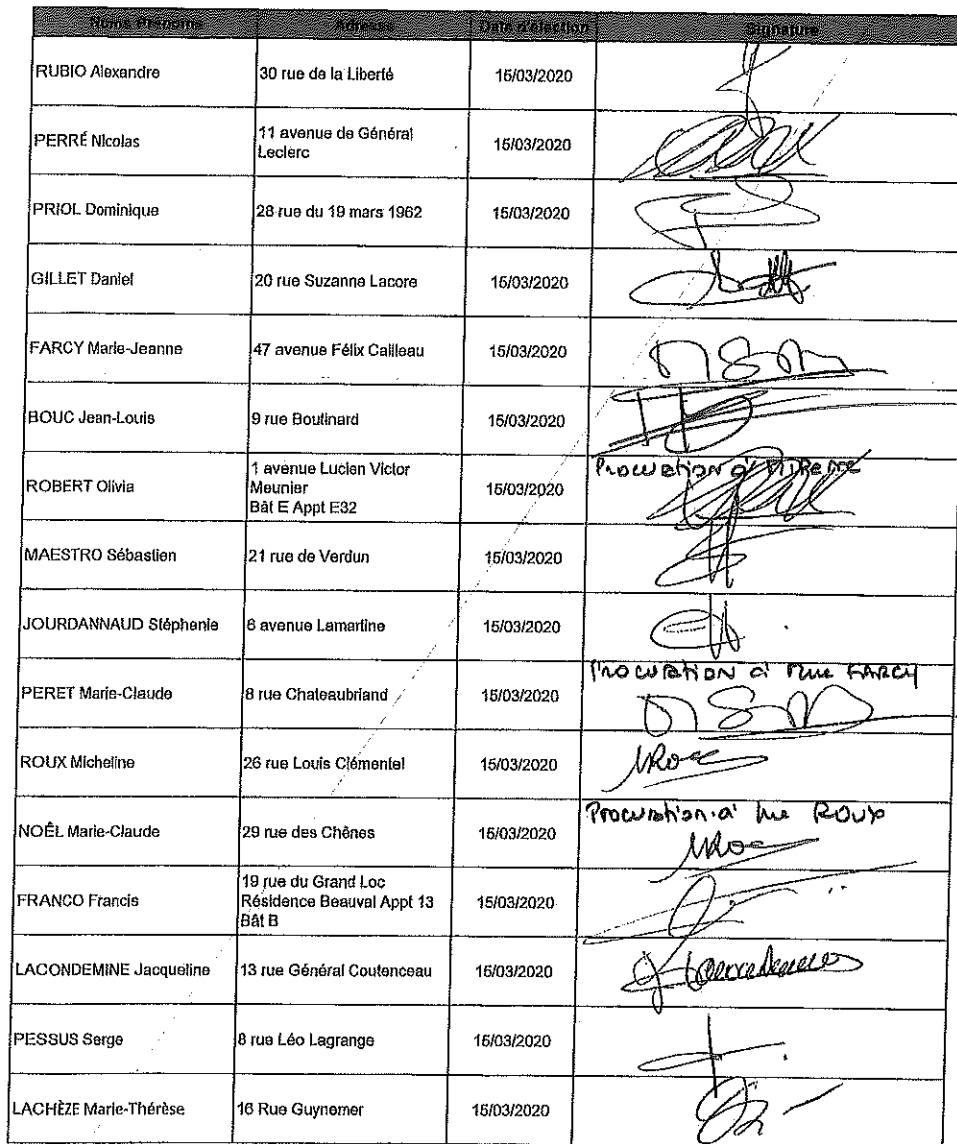 Noms Prénoms Adresse Date d'élection Signature
RUBIO Alexandre 30 rue de la Liberté 15/03/2020
PERRÉ Nicolas 11 avenue de Général
Leclerc 15/03/2020
PRIOL Dominique 28 rue du 19 mars 1962 15/03/2020
GILLET Daniel 20 rue Suzanne Lacore 15/03/2020
FARCY Marie-Jeanne 47 avenue Félix Cailleau 15/03/2020
BOUC Jean-Louis 9 rue Boutinard 15/03/2020
ROBERT Olivia 1 avenue Lucien Victor
Meunier
Bât E Appt E32 15/03/2020 Procuration à
MAESTRO Sébastien 21 rue de Verdun 15/03/2020
JOURDANNAUD Stéphenie 6 avenue Lamartine 15/03/2020
PERET Marie-Claude 8 rue Chateaubriand 15/03/2020 Procuration à Mme FARCY
ROUX Micheline 26 rue Louis Clémentel 15/03/2020 MRoux
NOÊL Marie-Claude 29 rue des Chênes 15/03/2020 Procuration à Me ROUX
FRANCO Francis 19 rue du Grand Loc
Résidence Beauval Appt 13
Bât B 15/03/2020
LACONDEMINE Jacqueline 13 rue Général Coutenceau 15/03/2020
PESSUS Serge 8 rue Léo Lagrange 15/03/2020
LACHÈZE Marie-Thérèse 16 Rue Guynemer 15/03/2020